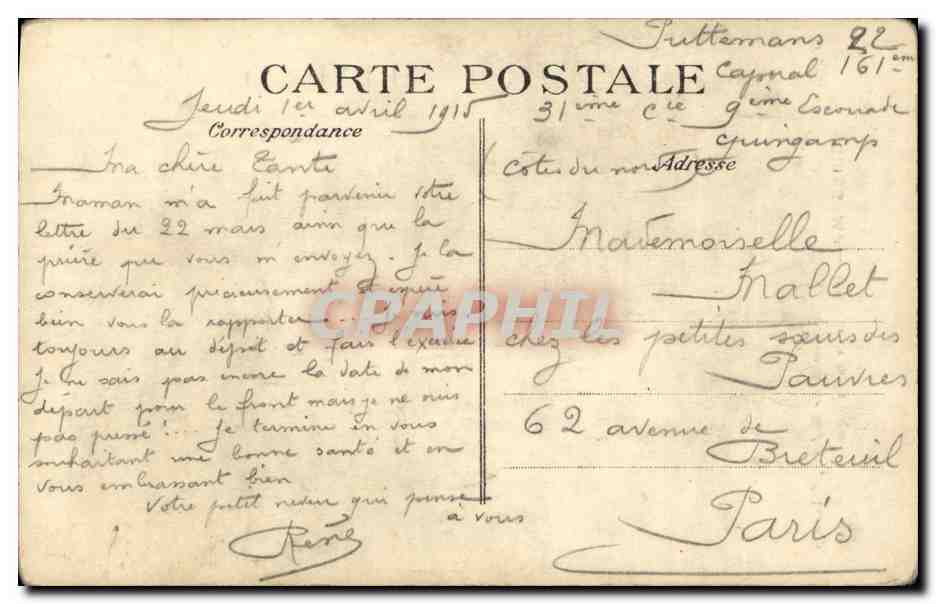 Puttemans 22
CARTE POSTALE
Caporal 161em
Jeudi 1er avril 1915
31ième Cie 9ième Escouade
Correspondance
Guingamp
Côtes du nord
Adresse
Ma chère Tante
Maman m'a fait parvenir votre
lettre du 22 mars ainsi que la
prière que vous m'envoyez. Je la
conserverai précieusement et espère
bien vous la rapporter... Je suis
toujours au dépôt et fais l'exercice
Je ne sais pas encore la date de mon
départ pour le front mais je ne suis
pas pressé!... Je termine en vous
souhaitant une bonne santé et en
vous embrassant bien
Votre petit neveu qui pense
à vous
René
Mademoiselle
Mallet
chez les petites sœurs des
Pauvres
62 avenue de
Breteuil
Paris
CPAPHIL